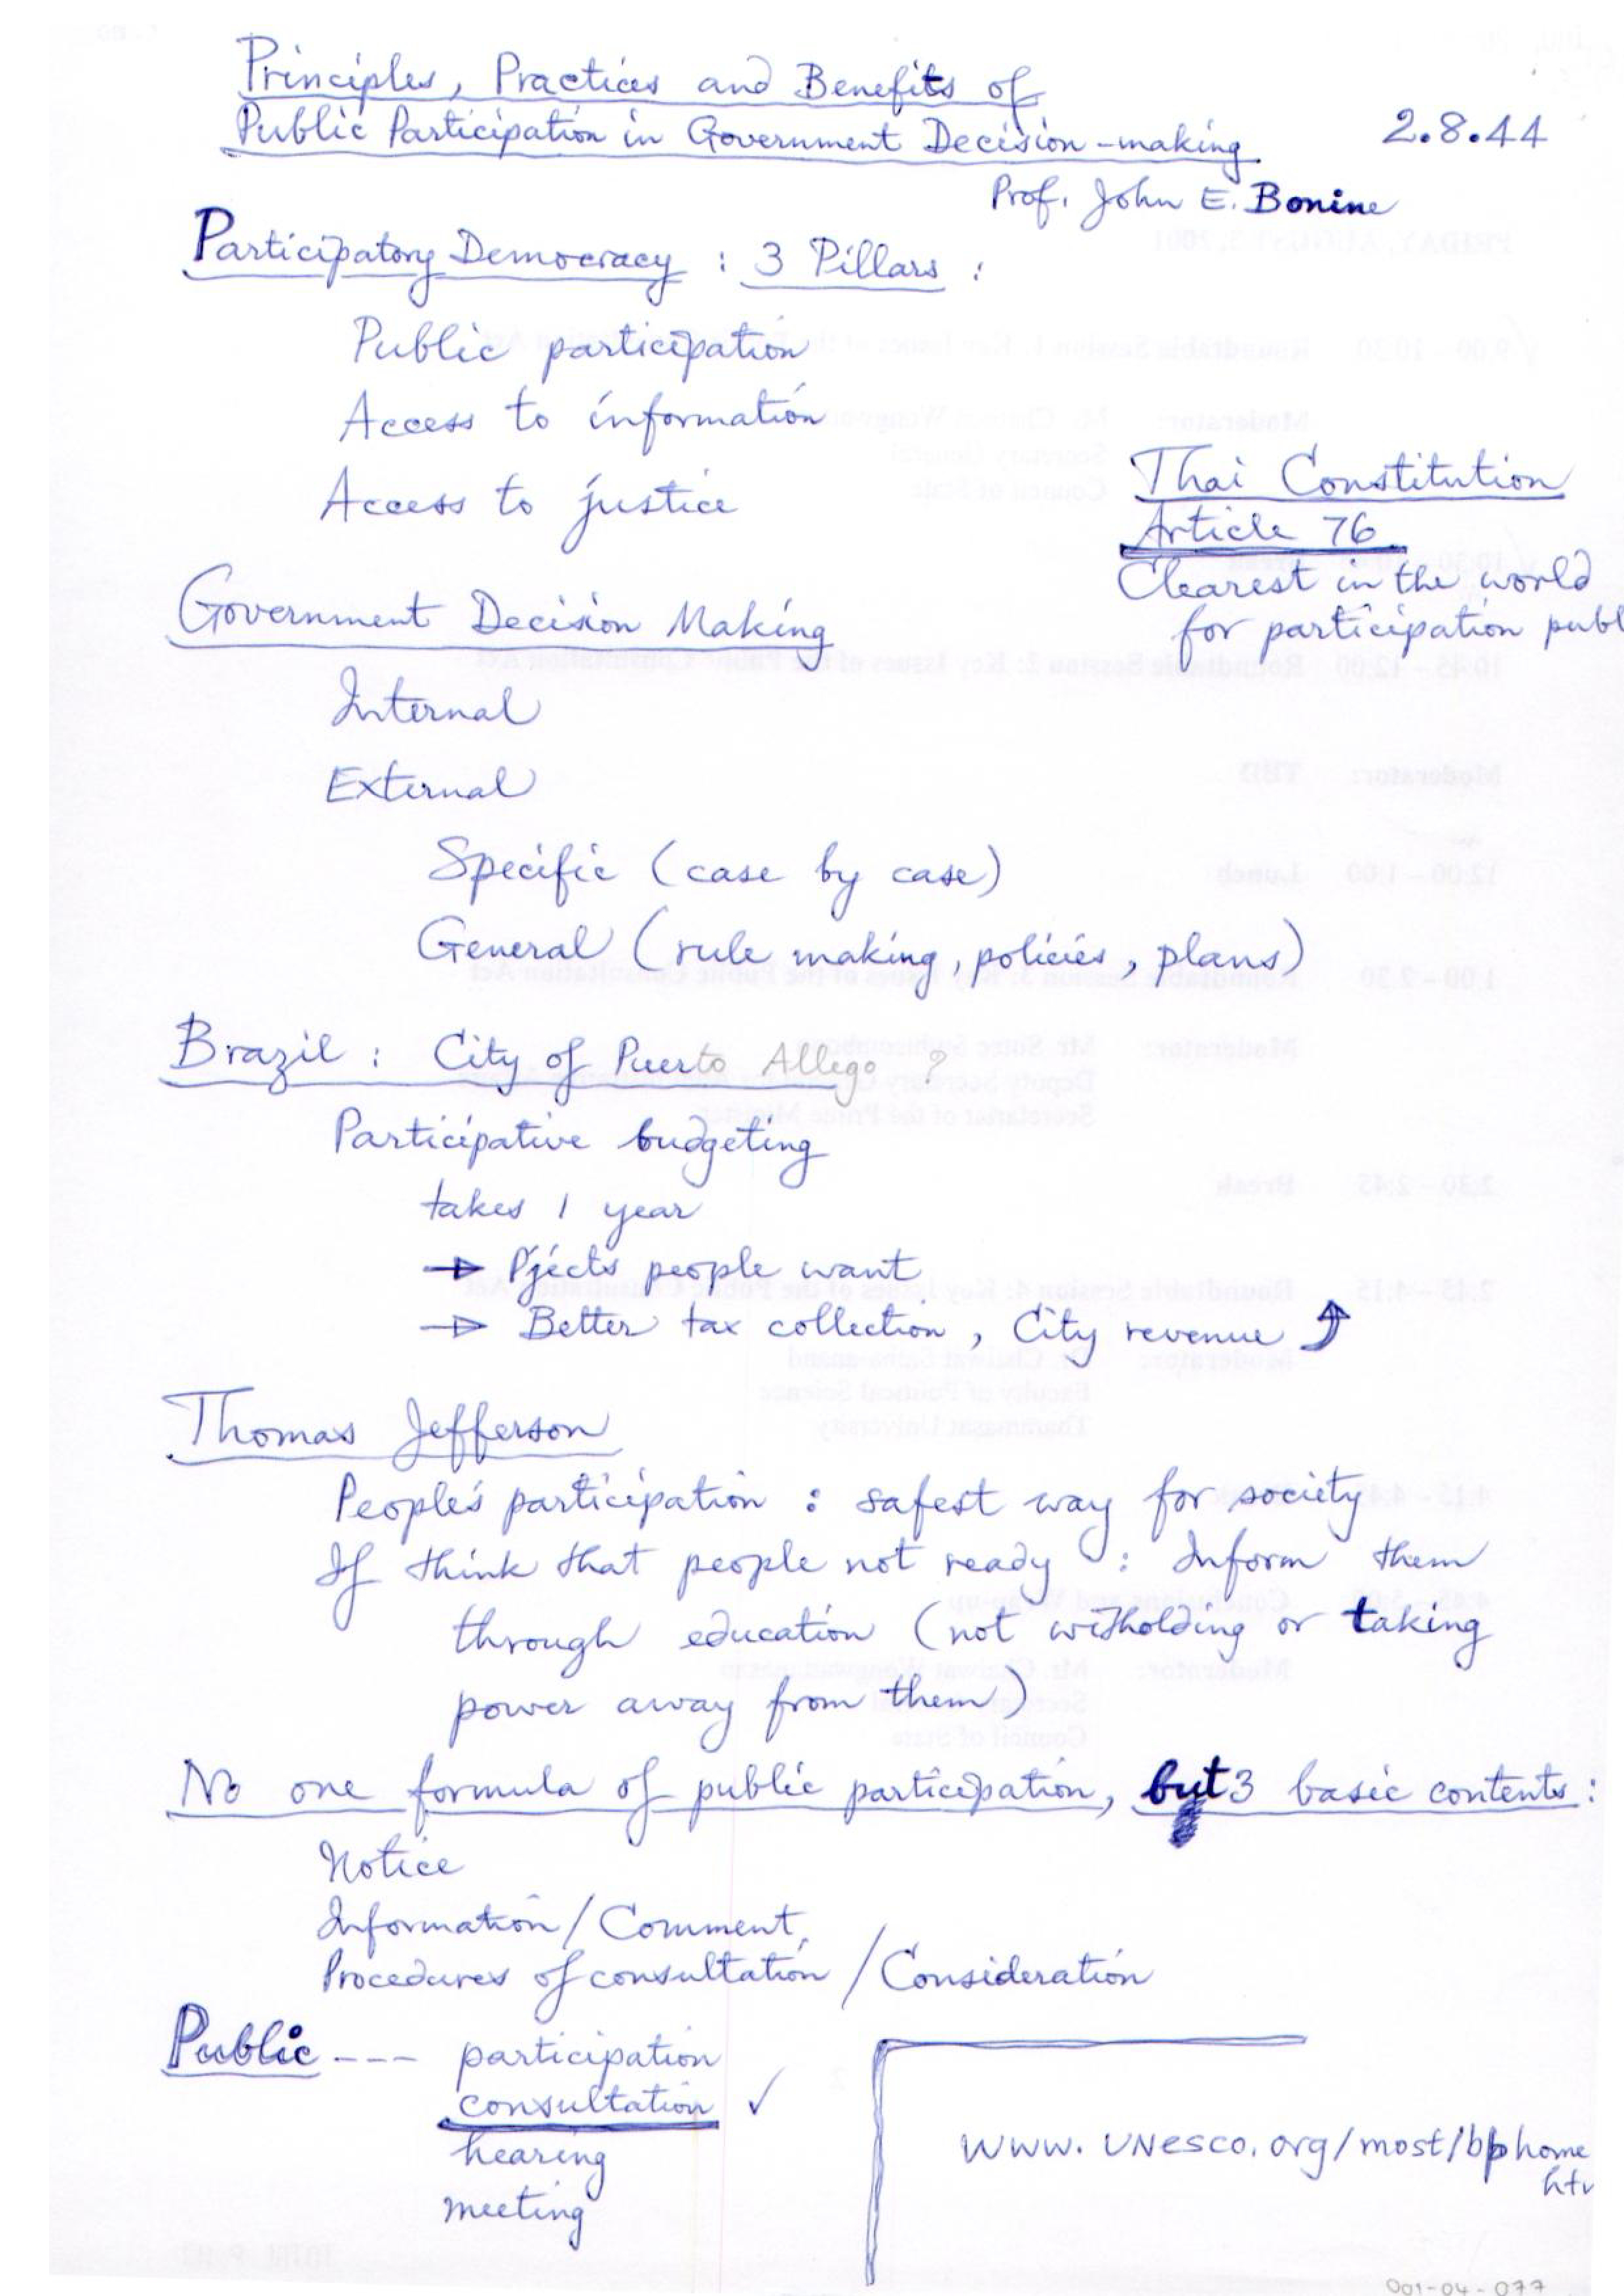 Principles, Practices and Benefits of
Public Participation in Government Decision-making
2.8.44
Prof. John E. Bonine
Participatory Democracy : 3 Pillars :
Public participation
Access to information
Access to justice
Thai Constitution
Article 76
Clearest in the world
for participation publ
Government Decision Making
Internal
External
Specific (case by case)
General (rule making, policies, plans)
Brazil : City of Puerto Allego ?
Participative budgeting
takes 1 year
→ Pjects people want
→ Better tax collection, City revenue ↑
Thomas Jefferson
People's participation : safest way for society
If think that people not ready : Inform them
through education (not witholding or taking
power away from them)
No one formula of public participation, but 3 basic contents :
Notice
Information / Comment
Procedures of consultation / Consideration
Public --- participation
consultation ✓
hearing
meeting
www.UNesco.org/most/bphome
htm
001-04-077